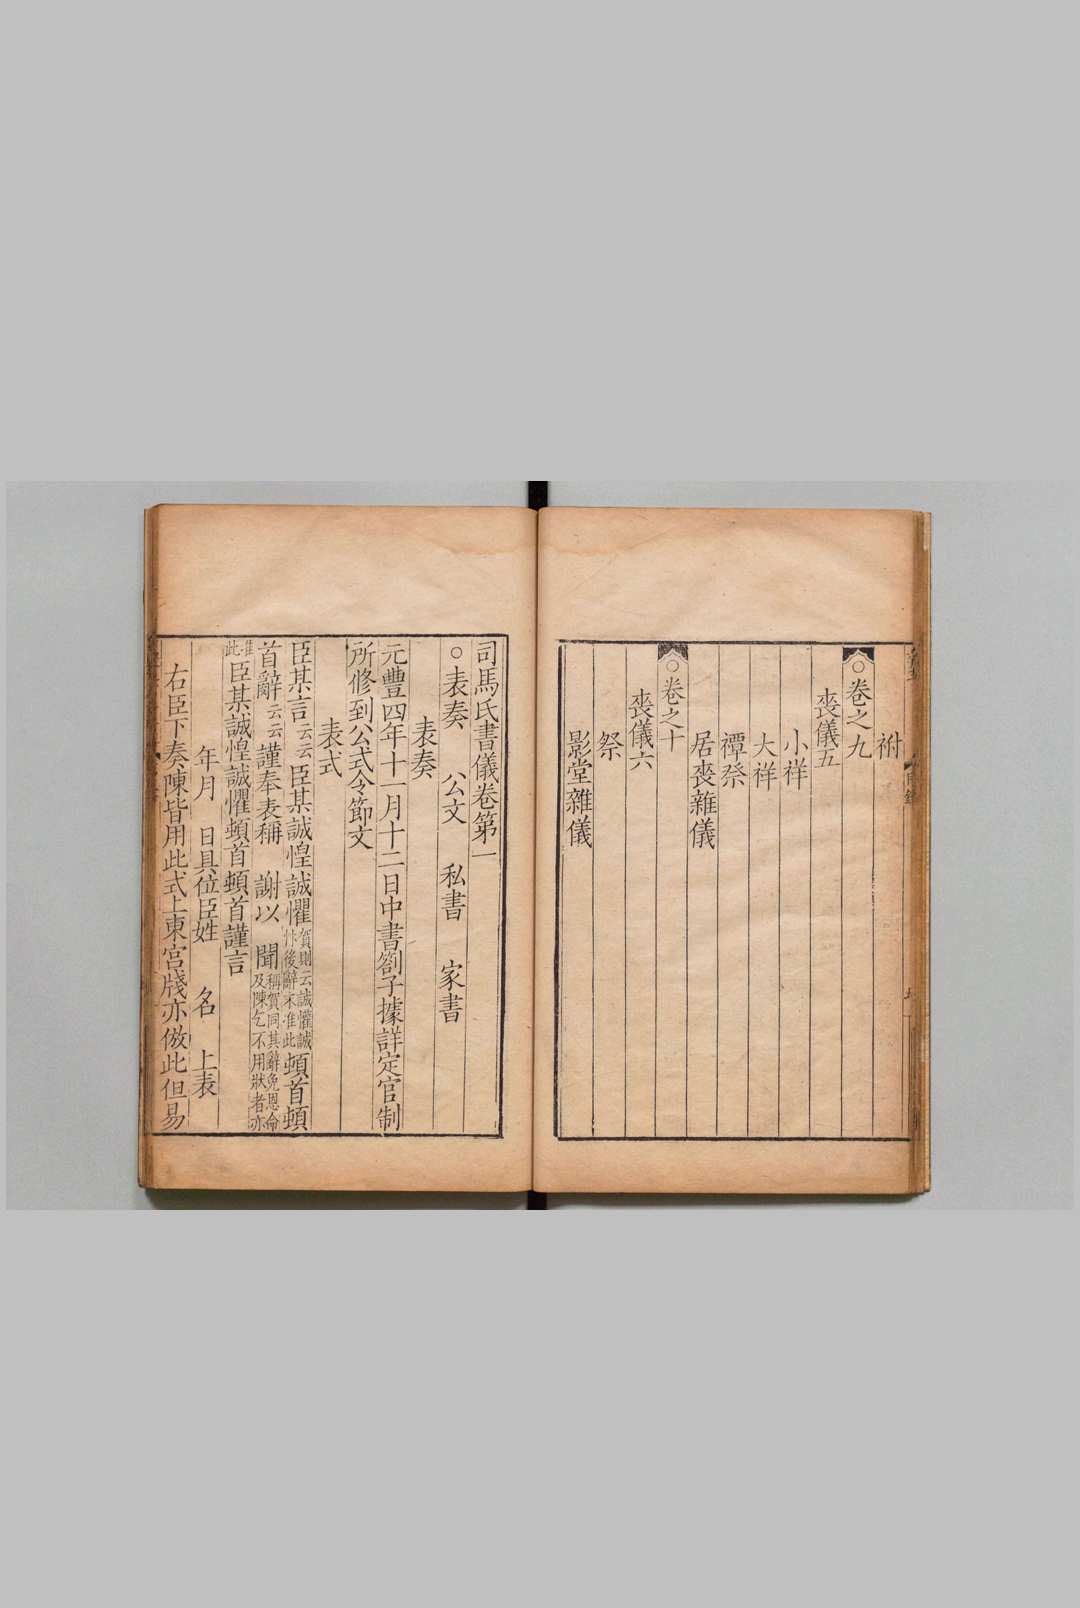 祔
○卷之九
喪儀五
小祥
大祥
禫祭
居喪雜儀
○卷之十
喪儀六
祭
影堂雜儀
司馬氏書儀卷第一
○表奏 公文 私書 家書
表奏
元豐四年十一月十二日中書劄子據詳定官制
所修到公式令節文
表式
臣某言云云臣某誠惶誠懼賀則云誠懽誠忭後辭末准此頓首頓
首辭云云謹奉表稱 謝以 聞稱賀同其辭免恩命及陳乞不用狀者亦
准此臣某誠惶誠懼頓首頓首謹言
年月 日具位臣姓 名 上表
右臣下奏陳皆用此式上東宮牋亦倣此但易